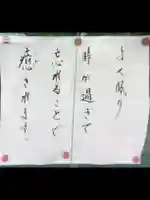 よく眠り
時が過ぎて
忘れることで
癒されます